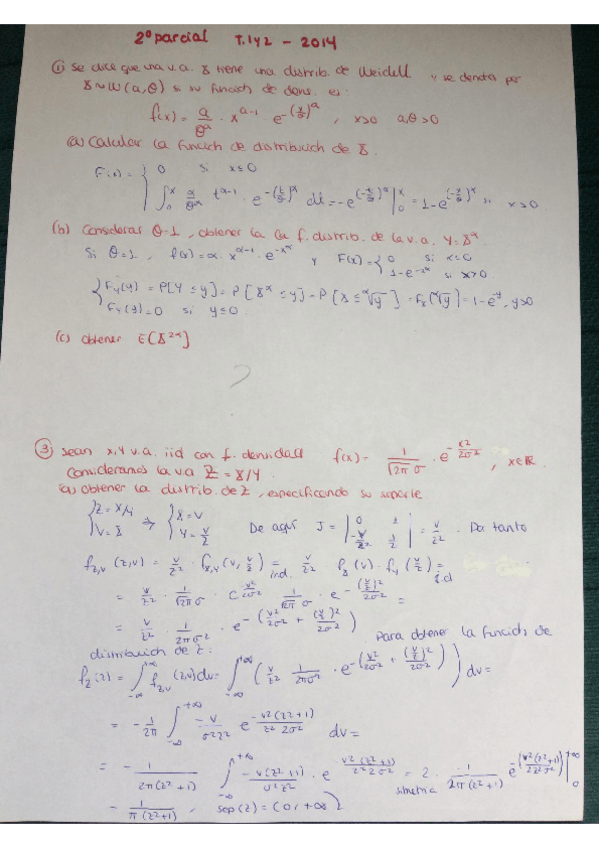 2º parcial T.1y2 - 2014
① Se dice que una v.a. X tiene una distrib. de Weibull y se denota por
X ~ W(a,θ) si su función de dens. es:
f(x) = a/θ^a · x^(a-1) · e^(-(x/θ)^a), x>0 a,θ>0
(a) Calcular la función de distribución de X.
F(x) = { 0 si x≤0
∫_0^x α/θ^α t^(α-1) · e^(-(t/θ)^α) dt = -e^(-(t/θ)^α) |_0^x = 1-e^(-(x/θ)^α) si x>0.
(b) Considerar θ=1, obtener la f. distrib. de la v.a. Y=X^α.
Si θ=1, f(x)=α·x^(α-1)·e^(-x^α) y F(x)= { 0 si x≤0
1-e^(-x^α) si x>0
{ F_Y(y) = P[Y≤y] = P[X^α≤y] = P[X≤ᵅ√y] = F_X(ᵅ√y) = 1-e^(-y), y>0
F_Y(y)=0 si y≤0
(c) Obtener E[X^(2α)]
?
③ Sean X,Y v.a. iid con f. densidad f(x) = 1/(√2π σ) · e^(-x²/2σ²), x∈ℝ.
Consideramos la v.a Z = X/Y
(a) Obtener la distrib. de Z, especificando su soporte
{ Z=X/Y
V=X ⇒ { X=V
Y=V/Z De aquí J = | 0 1
-V/Z² 1/Z | = V/Z². Por tanto
f_{Z,V}(z,v) = v/z² · f_{X,Y}(v, v/z) = ind. v/z² f_X(v) · f_Y(v/z) = i.d
= v/z² · 1/(√2π σ) · e^(-v²/2σ²) · 1/(√2π σ) · e^(-(v/z)²/2σ²) =
= v/z² · 1/(2πσ²) · e^(-(v²/2σ² + (v/z)²/2σ²)) Para obtener la función de
distribución de Z:
f_Z(z) = ∫_{-∞}^{+∞} f_{Z,V}(z,v)dv = ∫_{-∞}^{+∞} (v/z² 1/(2πσ²) · e^(-(v²/2σ² + (v/z)²/2σ²))) dv =
= -1/2π ∫_{-∞}^{+∞} -v/(σ²z²) e^(-v²(z²+1)/(z²2σ²)) dv =
= -1/(2π(z²+1)) ∫_{-∞}^{+∞} -v(z²+1)/(σ²z²) · e^(-v²(z²+1)/(z²2σ²)) = simetría 2 · -1/(2π(z²+1)) e^(-(v²(z²+1)/(2z²σ²))) |_0^{+∞}
= 1/(π(z²+1)), sop(Z) = (0, +∞)